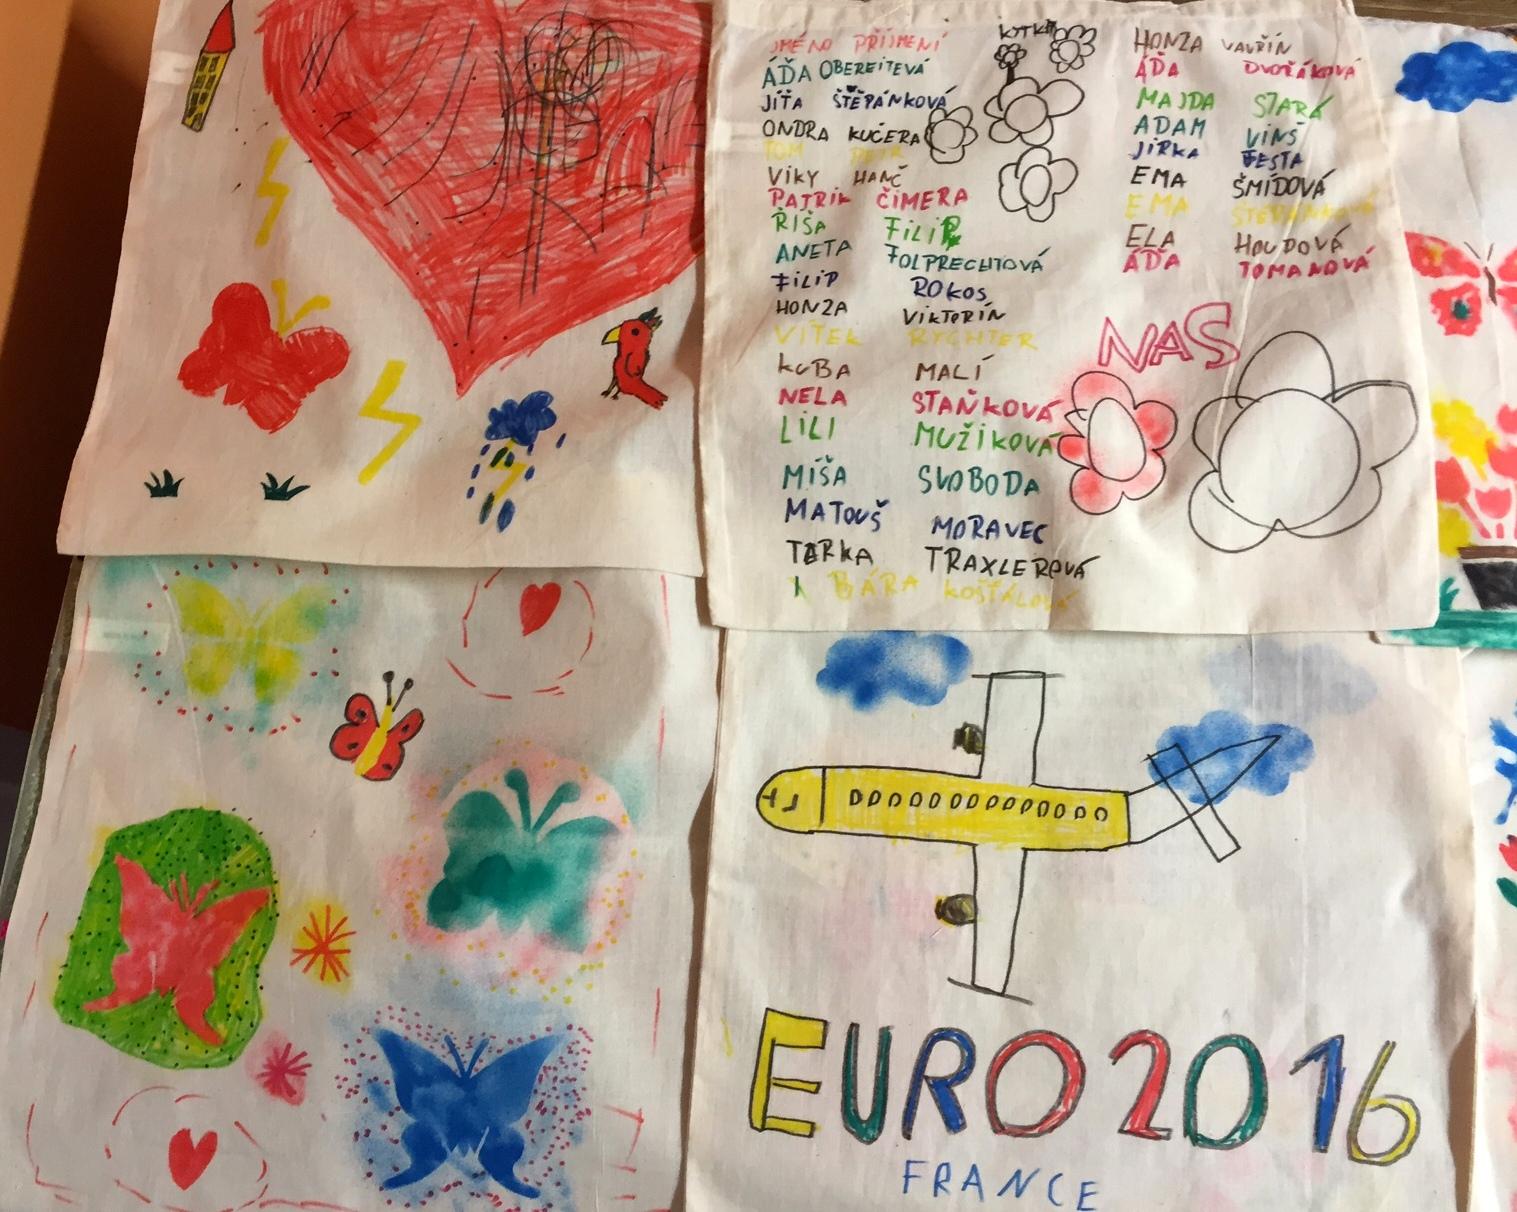 JMÉNO PŘÍJMENÍ
ÁĎA OBEREITEVÁ
JÍŤA ŠTĚPÁNKOVÁ
ONDRA KUČERA
TOM PETR
VIKY HANČ
PATRIK ČIMERA
ŘÍŠA FILIP
ANETA FOLPRECHTOVÁ
FILIP ROKOS
HONZA VIKTORÍN
VÍTEK RYCHTER
KUBA MALÍ
NELA STAŇKOVÁ
LILI MUŽÍKOVÁ
MÍŠA SVOBODA
MATOUŠ MORAVEC
TARKA TRAXLEROVÁ
BÁRA KOŠŤÁLOVÁ
KYTKA
HONZA VAVŘÍN
ÁĎA DVOŘÁKOVÁ
MAJDA STARÁ
ADAM VINŠ
JIRKA FESTA
EMA ŠMÍDOVÁ
EMA ŠTĚPÁNKOVÁ
ELA HOUDOVÁ
ÁĎA TOMANOVÁ
NAS
EURO 2016
FRANCE